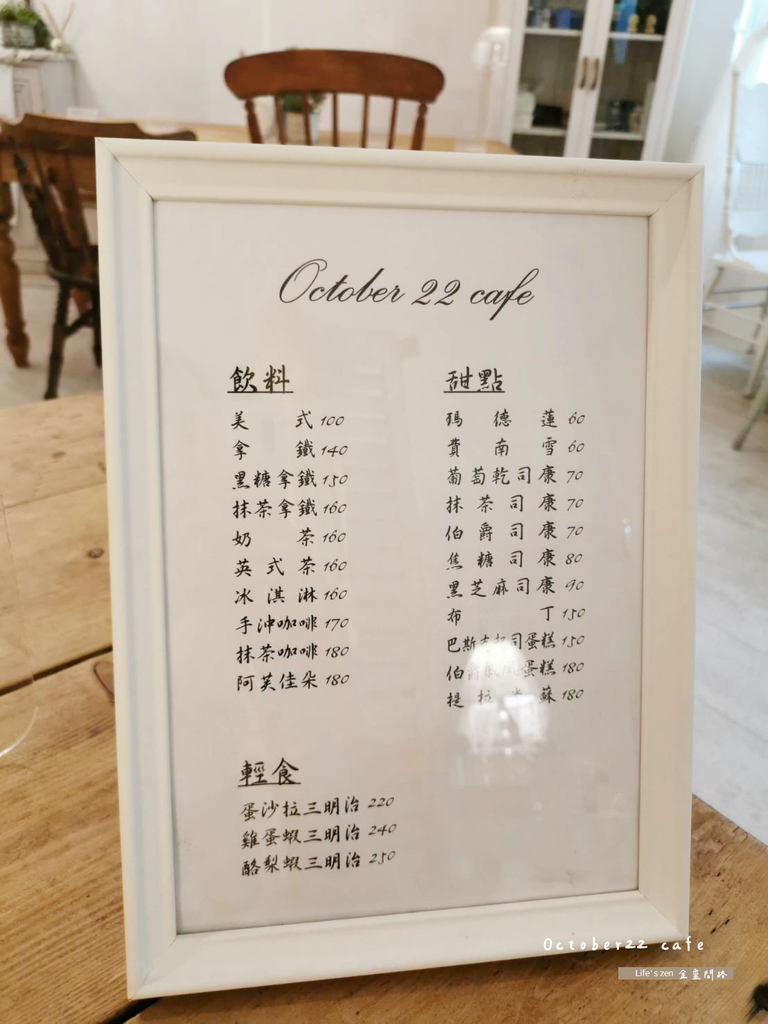 October 22 cafe
飲料
美式 100
拿鐵 140
黑糖拿鐵 150
抹茶拿鐵 160
奶茶 160
英式茶 160
冰淇淋 160
手沖咖啡 170
抹茶咖啡 180
阿芙佳朵 180
甜點
瑪德蓮 60
費南雪 60
葡萄乾司康 70
抹茶司康 70
伯爵司康 70
焦糖司康 80
黑芝麻司康 90
布丁 150
巴斯克起司蛋糕 150
伯爵戚風蛋糕 180
提拉米蘇 180
輕食
蛋沙拉三明治 220
雞蛋蝦三明治 240
酪梨蝦三明治 250
October22 cafe
Life's zen